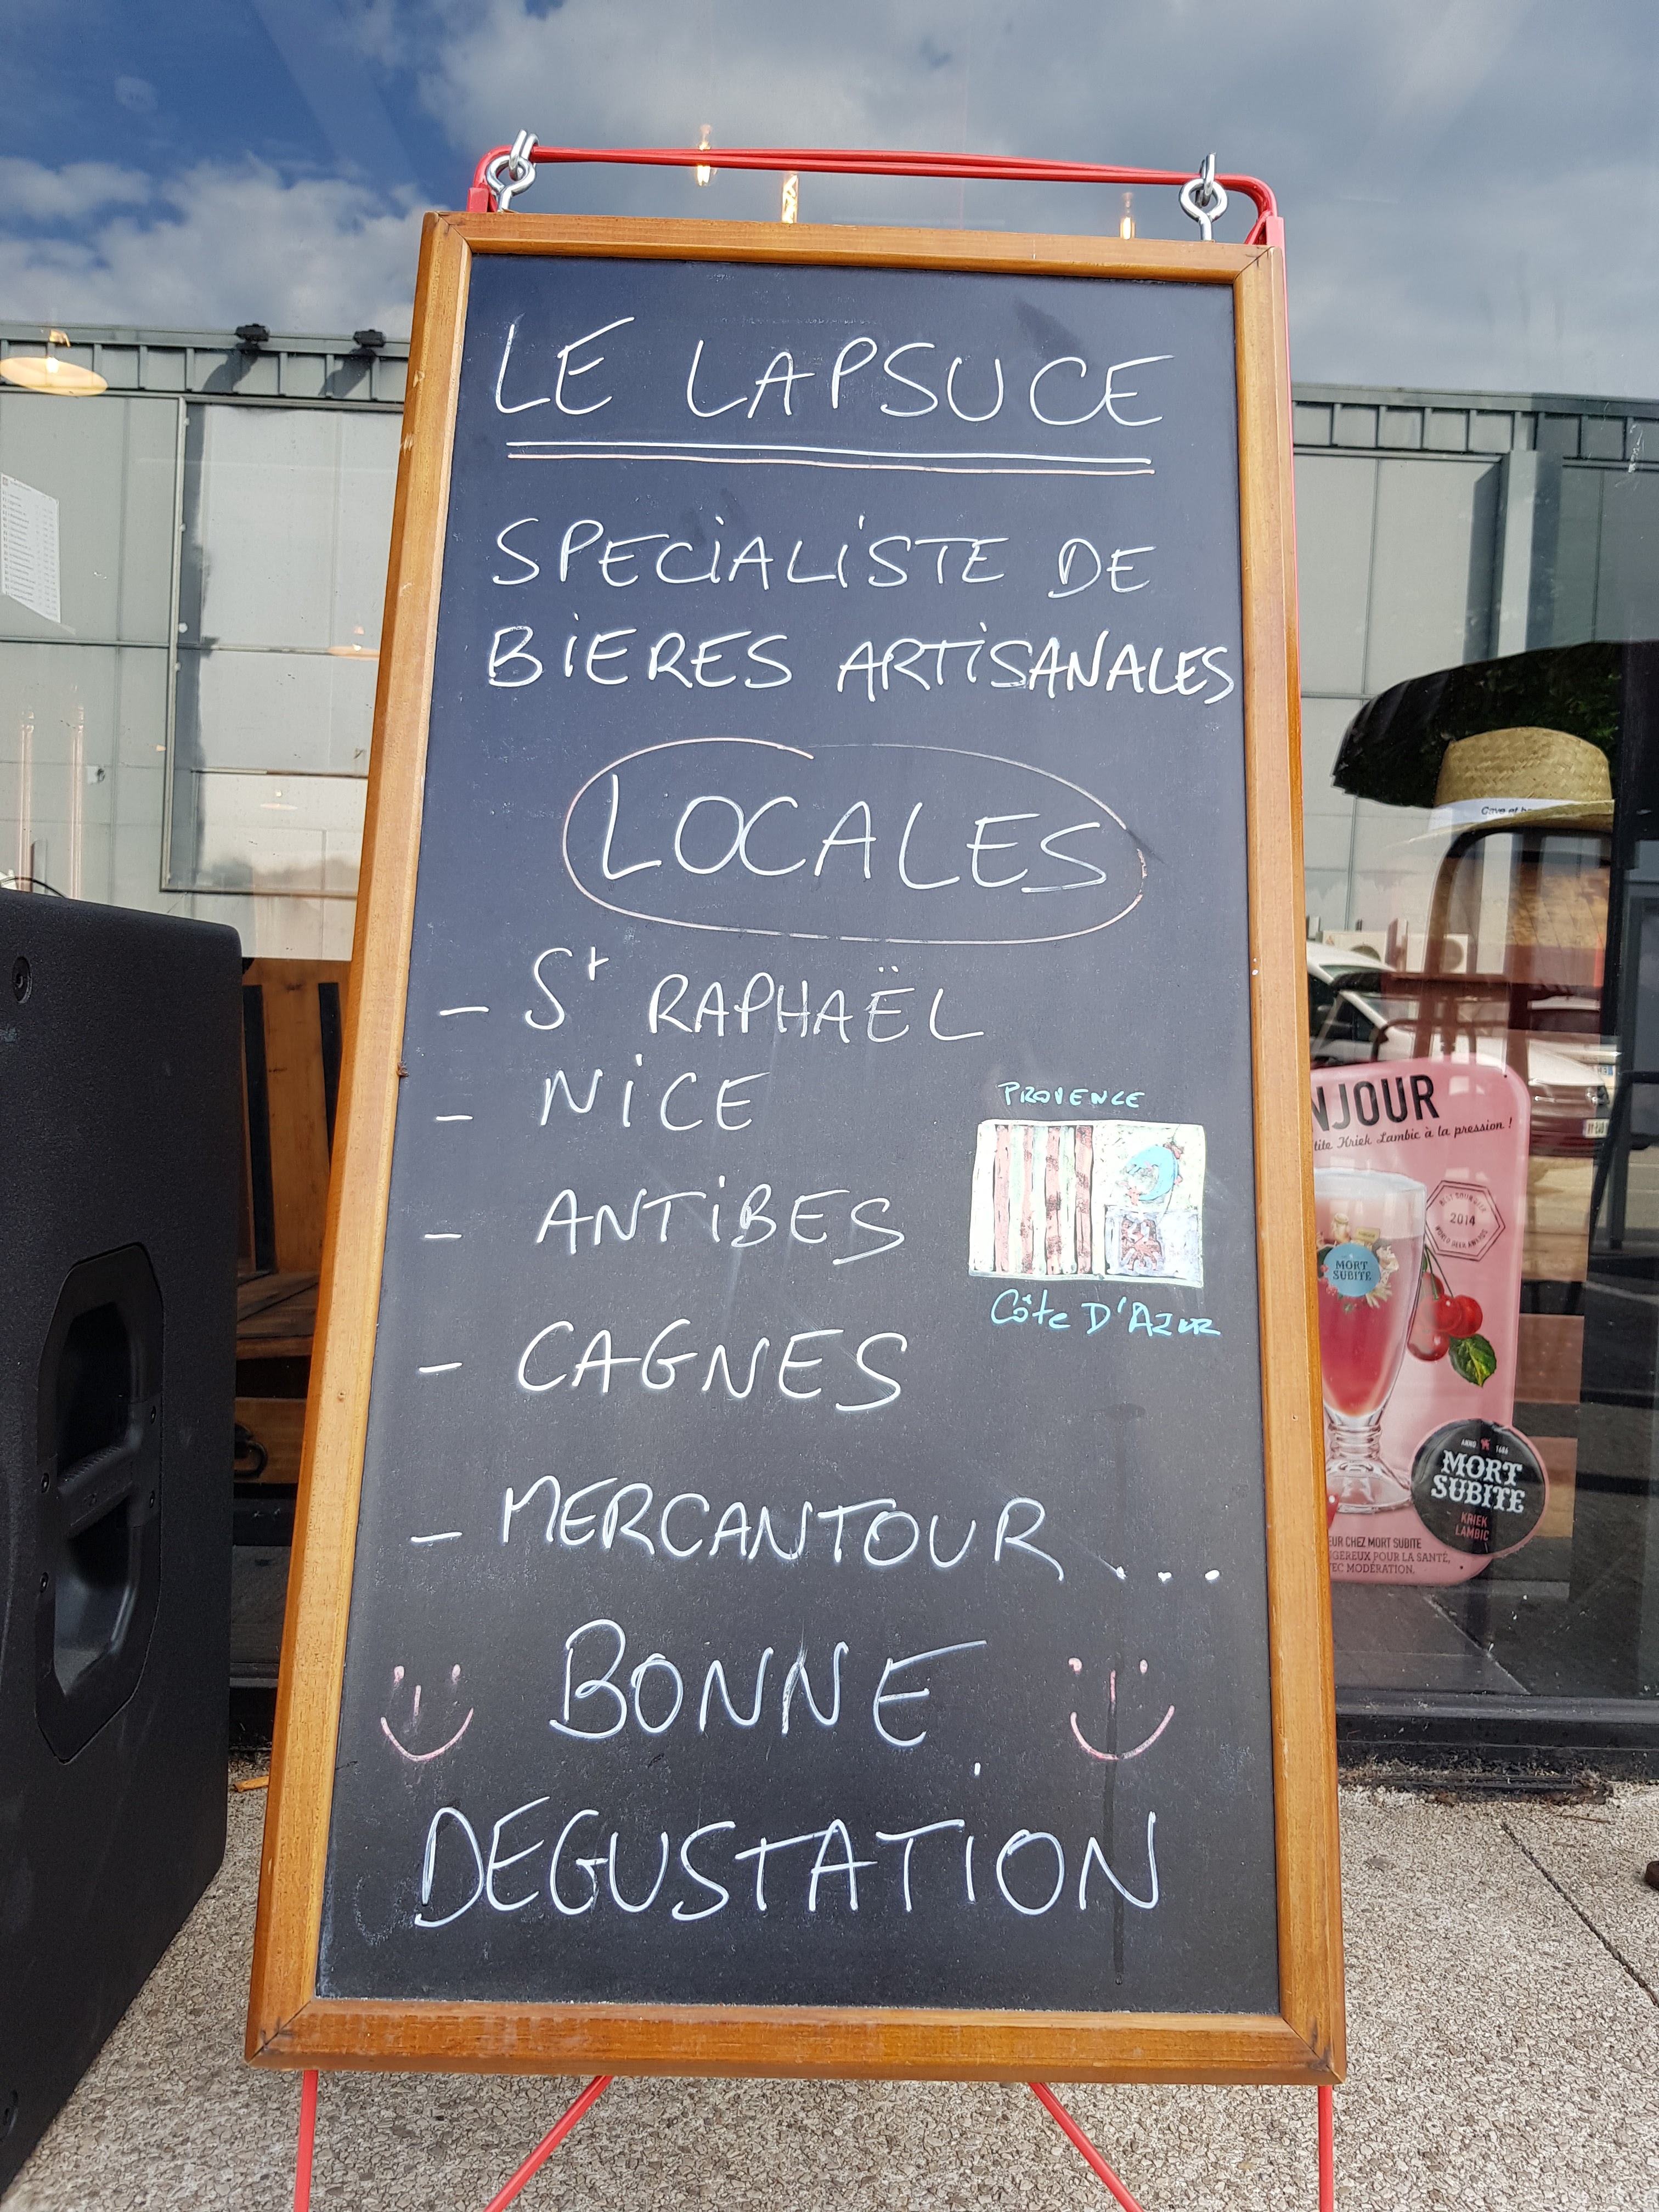 LE LAPSUCE
SPECIALISTE DE
BIERES ARTISANALES
LOCALES
- St RAPHAËL
- NICE
- ANTIBES
- CAGNES
- MERCANTOUR...
PROVENCE
Côte D'AZUR
BONNE
DEGUSTATION
NJOUR
tite Kriek Lambic à la pression !
2014
WORLD BEER AWARDS
MORT
SUBITE
ANNO 1686
MORT
SUBITE
KRIEK
LAMBIC
EUR CHEZ MORT SUBITE
NGEREUX POUR LA SANTÉ,
EC MODÉRATION.